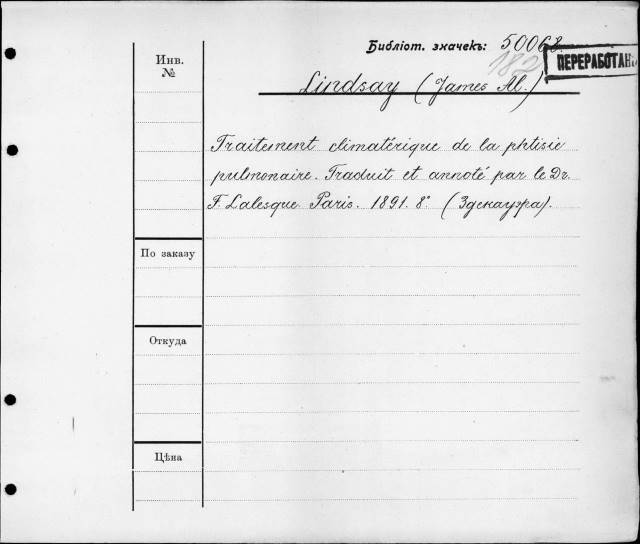 Библіот. значекъ: 50062.
182
ПЕРЕРАБОТАН
Инв.
№
Lindsay (James Al.)
Traitement climatérique de la phtisie
pulmonaire. Traduit et annoté par le Dr.
F. Lalesque Paris. 1891. 8° (Зденауэра).
По заказу
Откуда
Цѣна